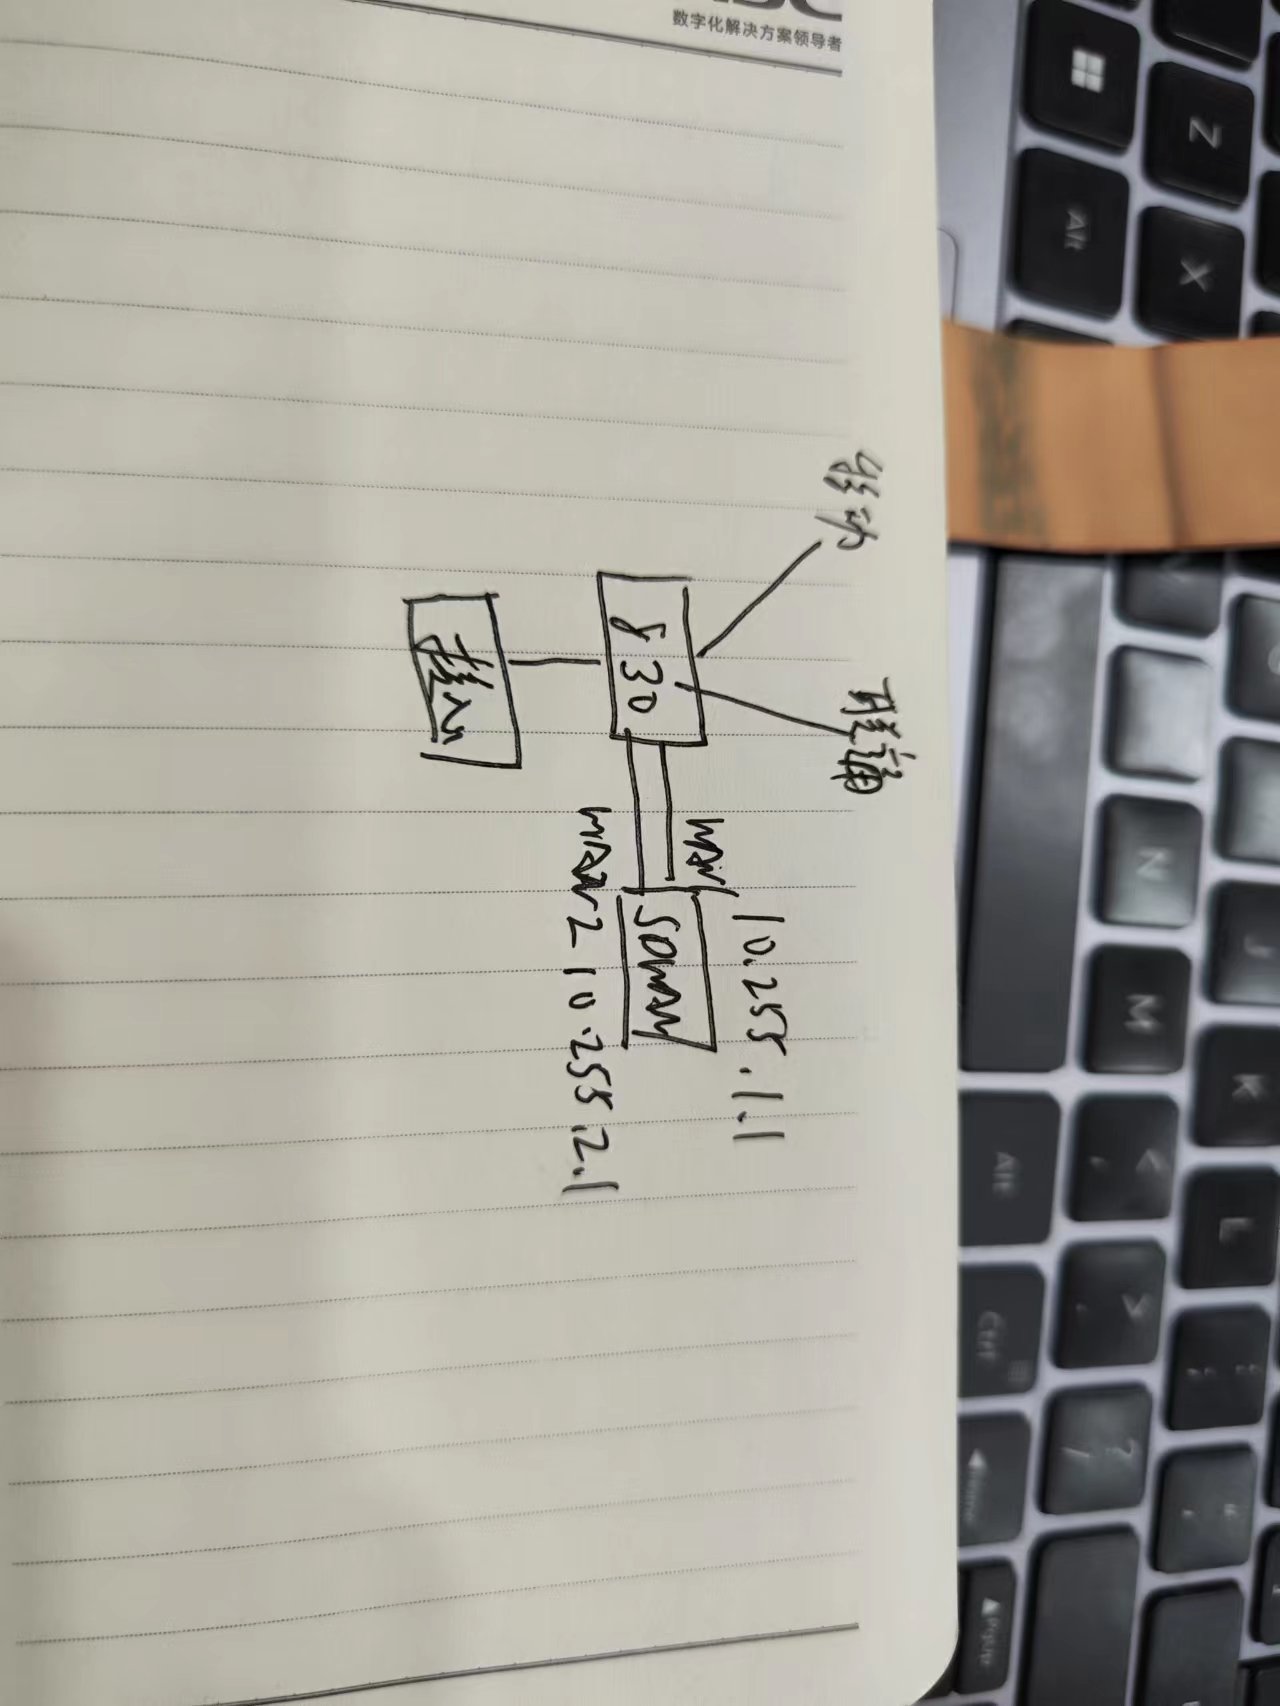 数字化解决方案领导者
移动
联通
830
核心
wan1
10.255.1.1
SDWAN
wan2 10.255.2.1
Z
Alt
X
N
J
M
K
Alt
L
Ctrl
Home
PgUp